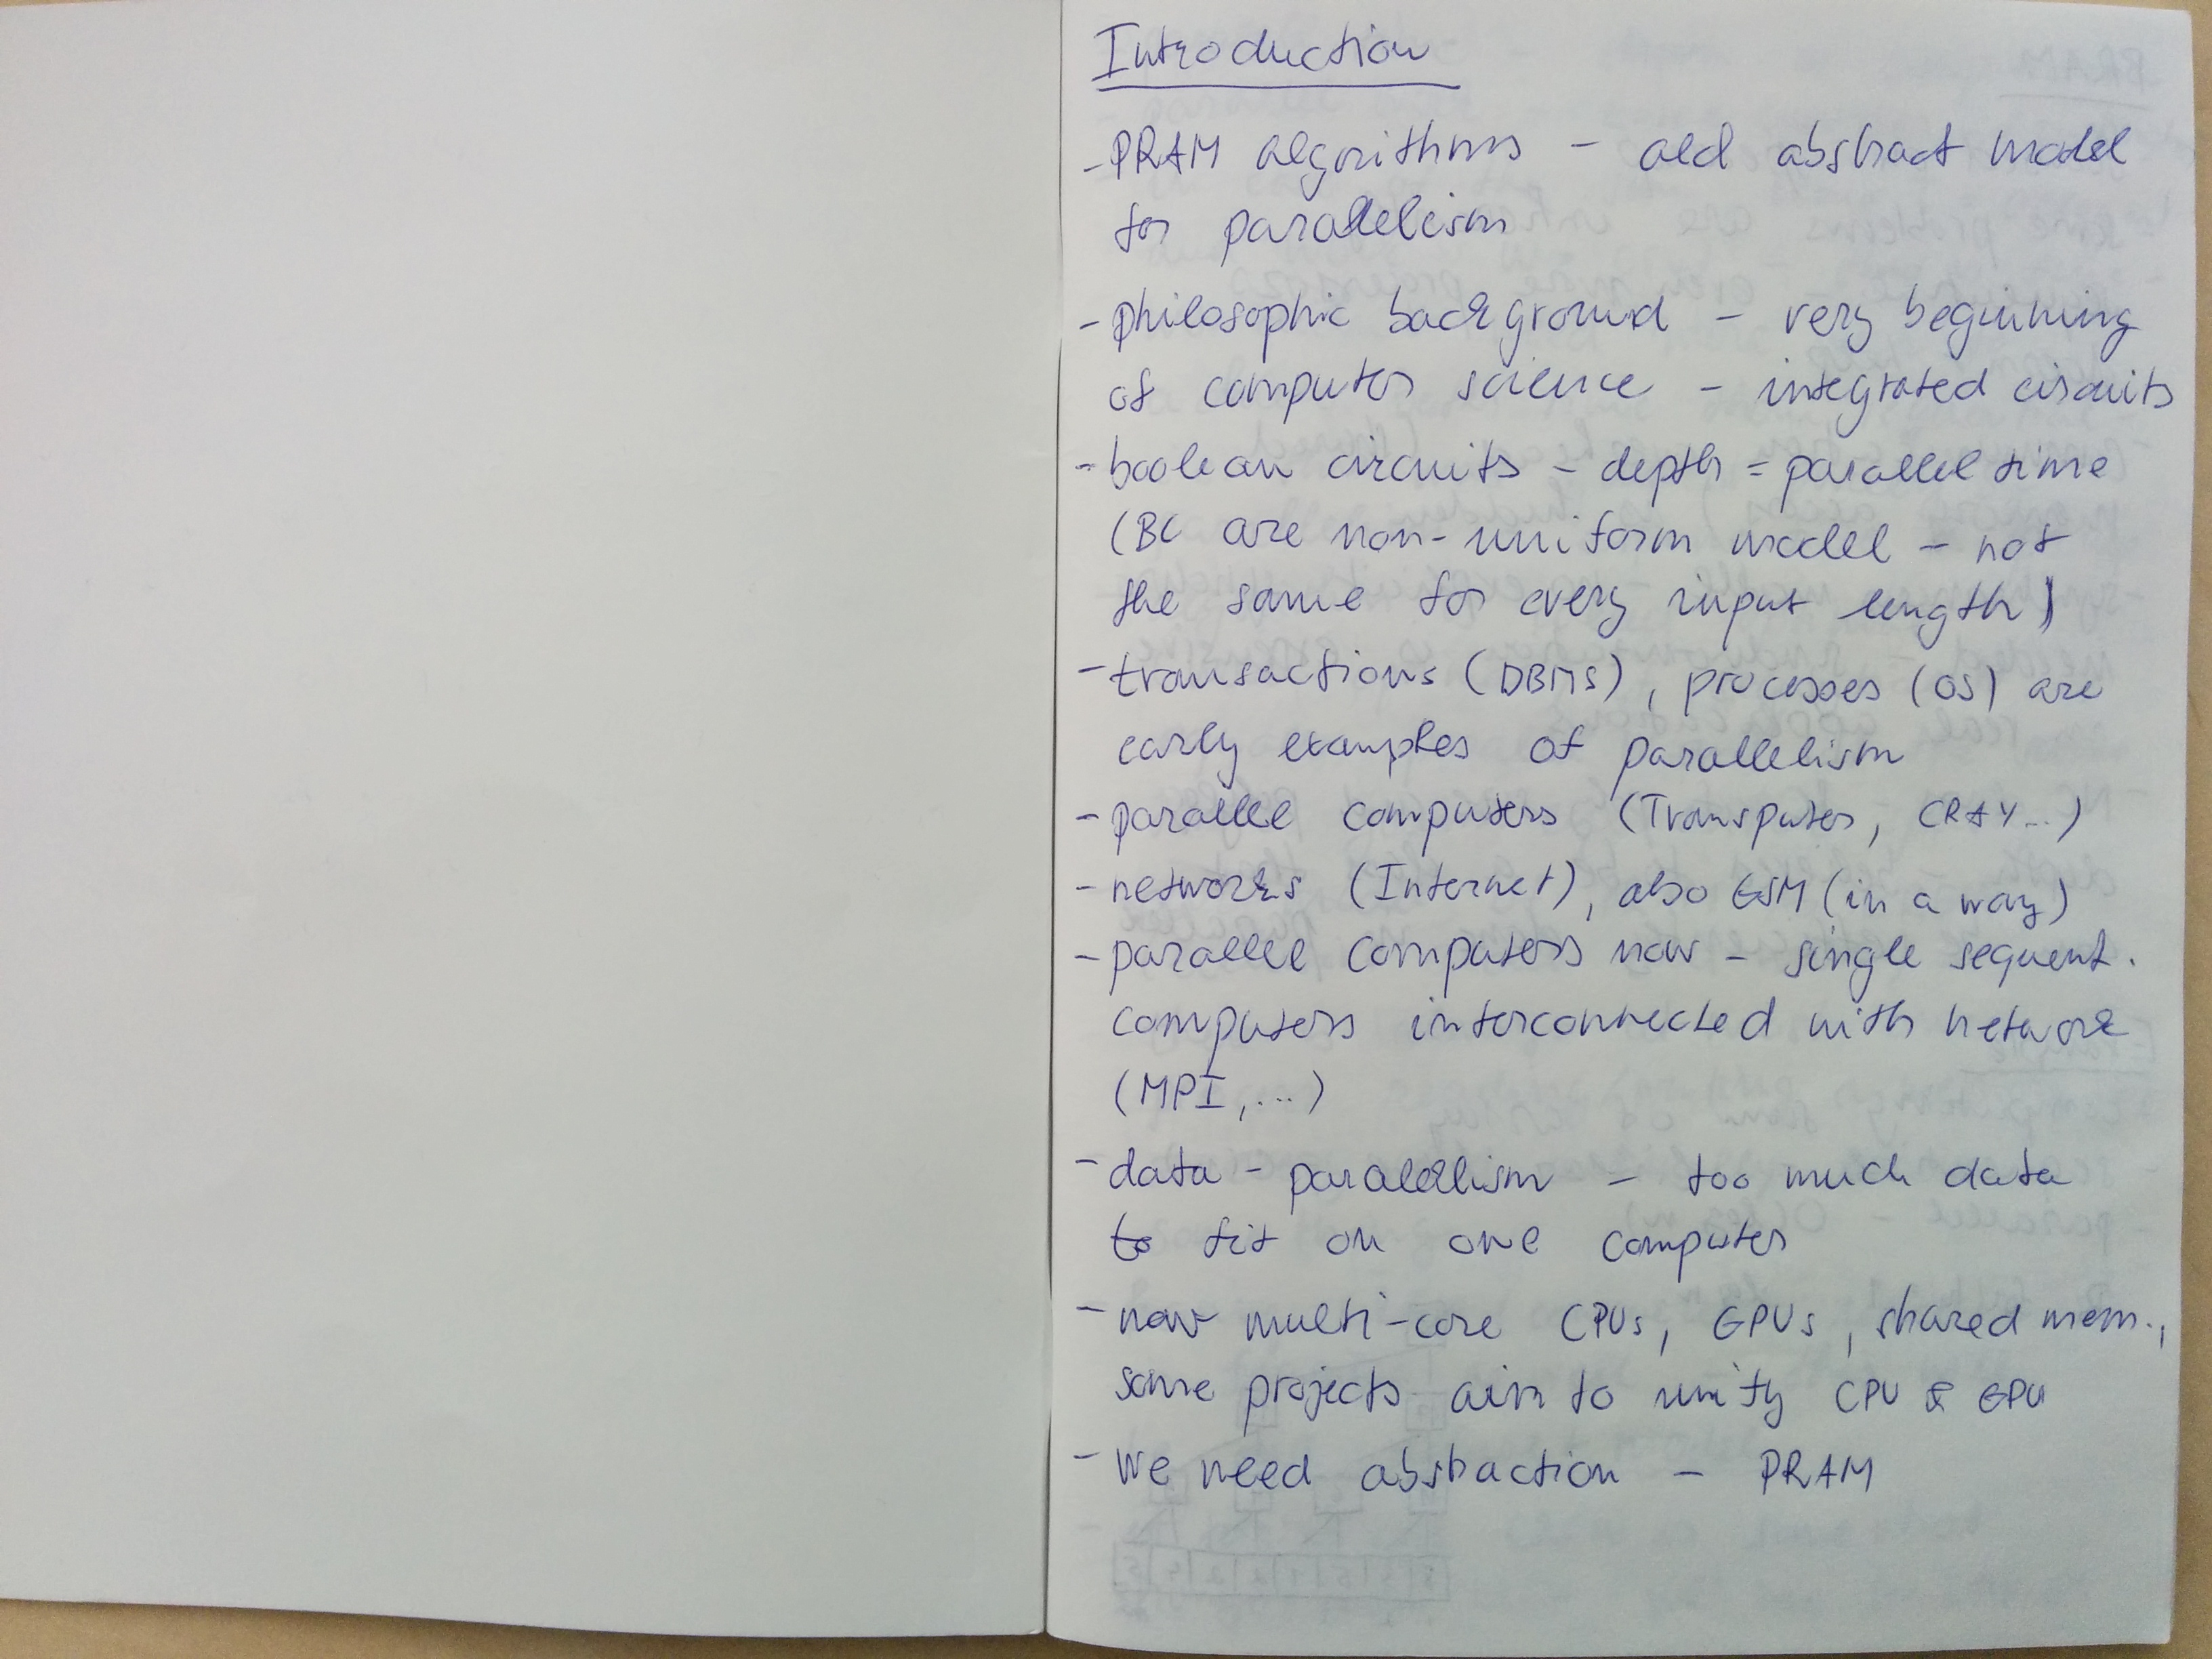 Introduction
- PRAM algorithms - old abstract model
for parallelism
- philosophic background - very beginning
of computer science - integrated circuits
- boolean circuits - depth = parallel time
(BC are non-uniform model - not
the same for every input length)
- transactions (DBMS), processes (OS) are
early examples of parallelism
- parallel computers (Transputer, CRAY...)
- networks (Internet), also GSM (in a way)
- parallel computers now - single sequent.
computers interconnected with network
(MPI, ...)
- data - parallelism - too much data
to fit on one computer
- now multi-core CPUs, GPUs, shared mem.,
some projects aim to unify CPU & GPU
- we need abstraction - PRAM